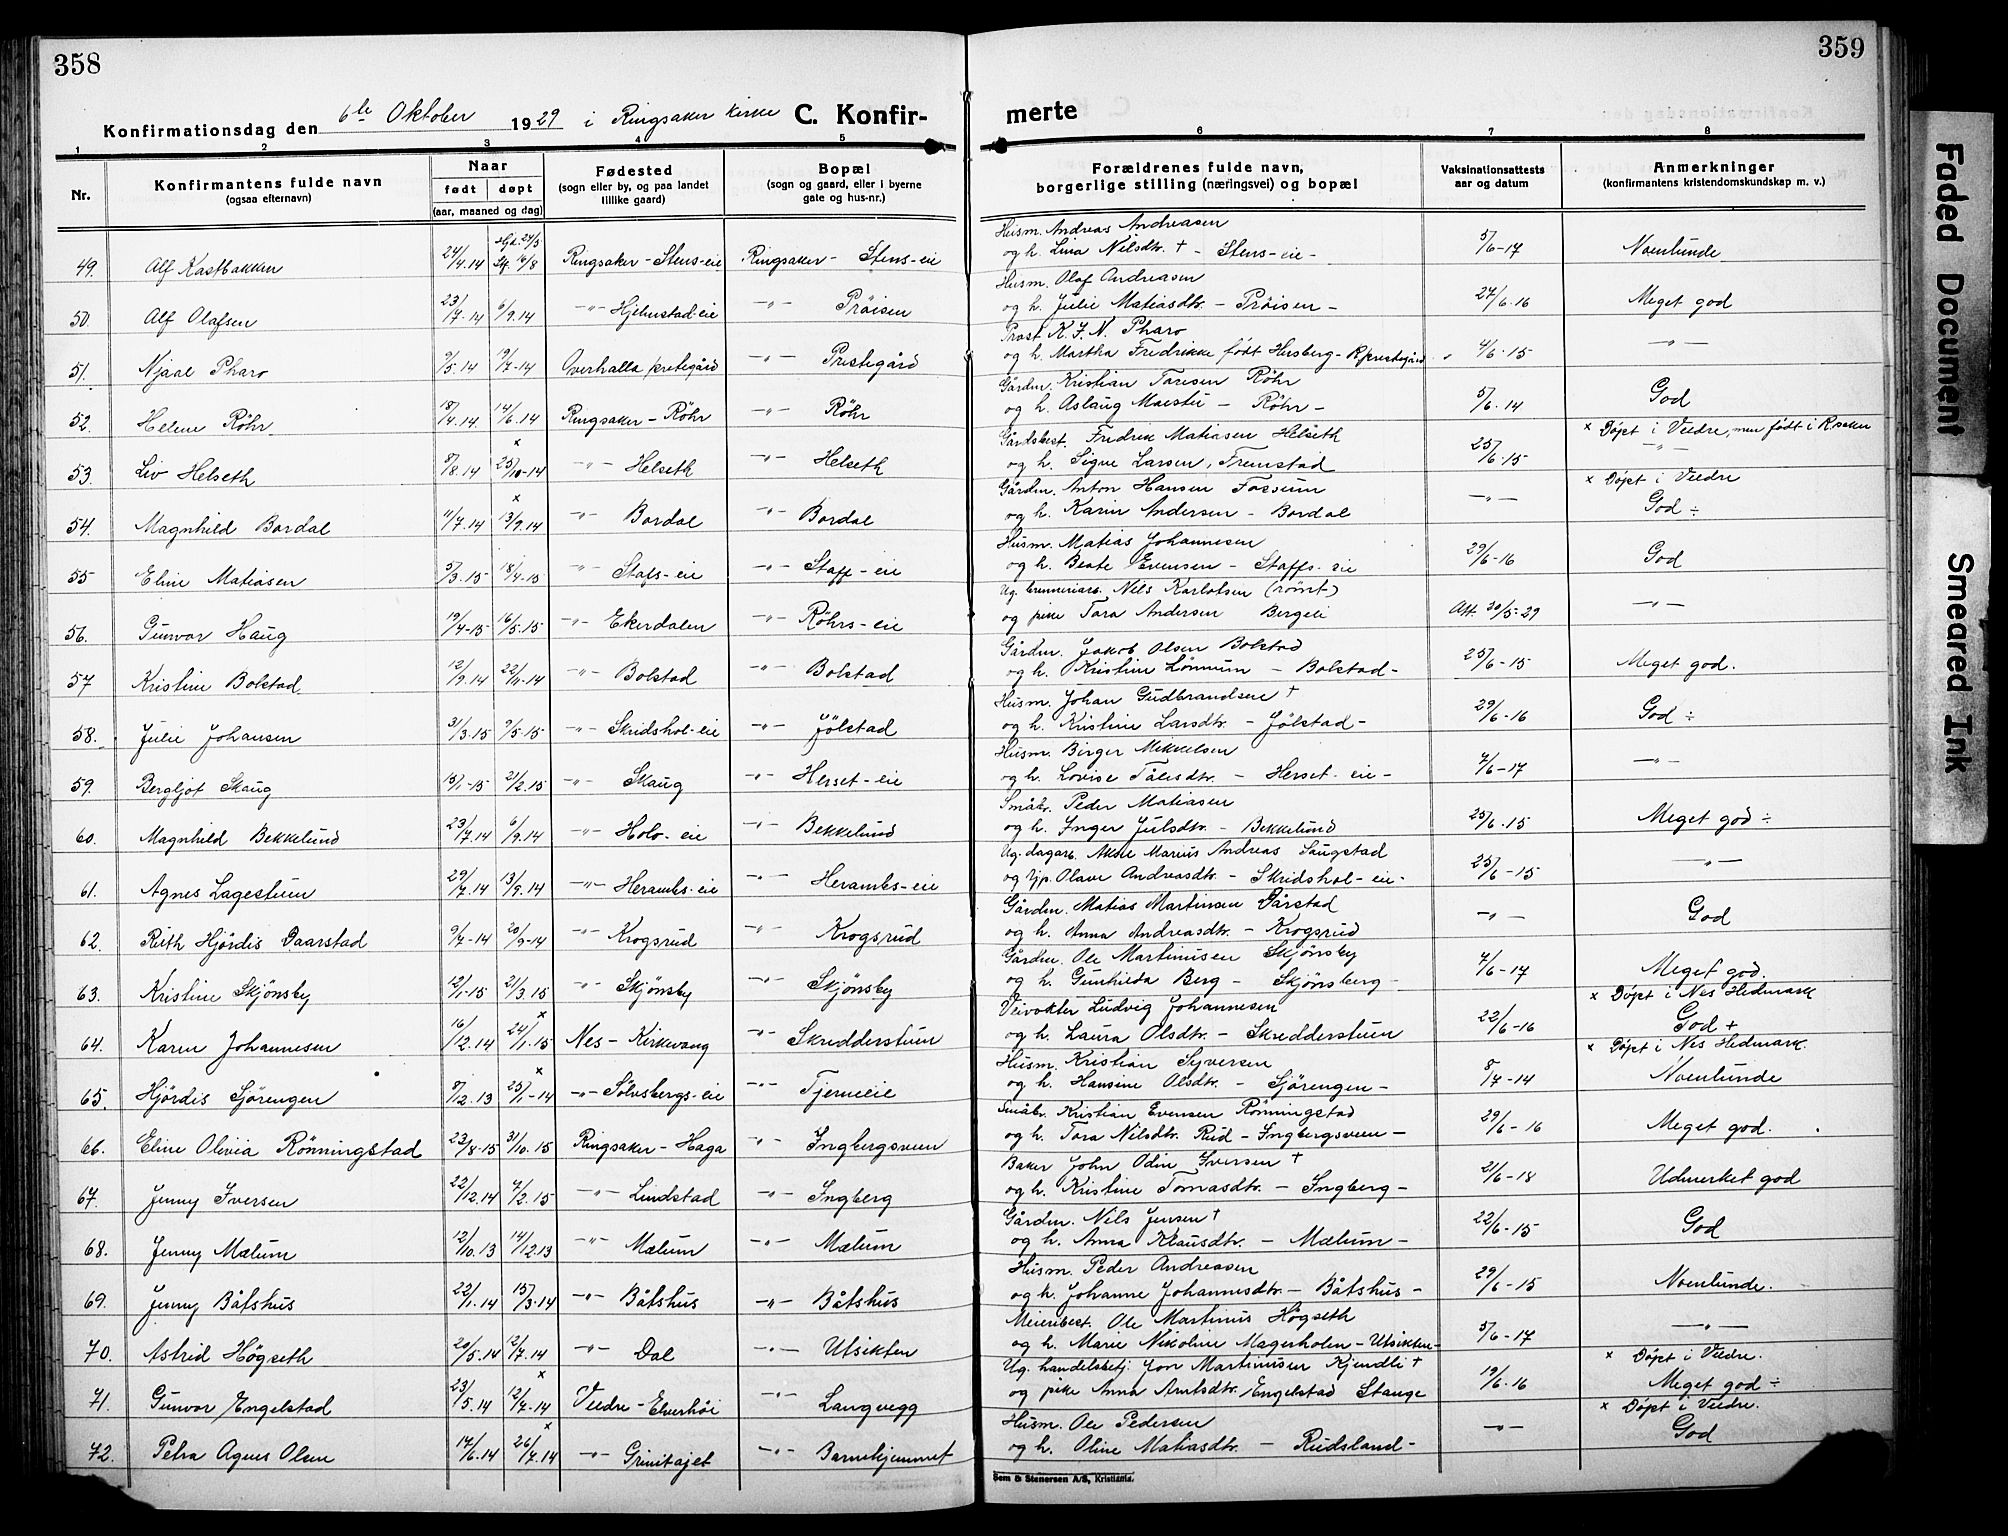 358
359
Konfirmationsdag den 6te Oktober 1929 i Ringsaker kirke C. Konfir-
merte
1 2 3 4 5 6 7 8
Nr. Konfirmantens fulde navn (ogsaa efternavn) Naar født døpt (aar, maaned og dag) Fødested (sogn eller by, og paa landet tillike gaard) Bopæl (sogn og gaard, eller i byerne gate og hus-nr.) Forældrenes fulde navn, borgerlige stilling (næringsvei) og bopæl Vaksinationsattests aar og datum Anmerkninger (konfirmantens kristendomskundskap m. v.)
Husm. Andreas Andreasen
49. Alf Kastbakken 24/4.14 Ringsaker - Stens-eie Ringsaker - Stens-eie og h. Lina Nilsdtr. † - Stens-eie - 5/6-17 Noenlunde
Husm. Olaf Andreasen
50. Alf Olafsen 23/7-14 6/9.14 -"- Hjelmstad-eie -"- Prøisen og h. Julie Matiasdtr. - Prøisen - 27/6.16 Meget god
Prost K.F.N. Pharo
51. Njaal Pharo 9/5.14 19/7-14 Overhalla prestegård -"- Prestegård og h. Martha Fredrikke født Husberg - R.prestegård 4/6.15 -"-
Gårdm. Kristian Toresen Röhr
52. Helene Röhr 18/4.14 14/6.14 Ringsaker - Röhr -"- Röhr og h. Aslaug Moestu - Röhr - 5/6.14 God
Gårdsbest. Fredrik Matiasen Helseth × Døpt i Veldre, men født i R.saker
53. Liv Helseth 8/8.14 × 25/10-14 -"- Helseth -"- Helseth og h. Signe Larsen, Fremstad 25/6.15 -"-
Gårdm. Anton Hansen Fossum × Døpt i Veldre
54. Magnhild Bordal 11/7.14 × 13/9.14 -"- Bordal -"- Bordal og h. Karin Andersen - Bordal -"- God ÷
Husm. Matias Johannesen
55 Eline Matiasen 5/3.15 18/4-15 -"- Stafs-eie -"- Staff-eie og h. Beate Evensen - Staffs-eie 29/6-16 God
Ug. brenneriarb. Nils Karlotsen (rømt)
56. Gunvor Haug 19/4-15 16/5.15 -"- Ekerdalen -"- Röhrs-eie og pike Tora Andersen Bergeli Att. 30/5-29 -"-
Gårdm. Jakob Olsen Bolstad
57 Kristine Bolstad 12/9.14 22/11-14 -"- Bolstad -"- Bolstad og h. Kristine Lönnum - Bolstad - 25/6-15 Meget god.
Husm. Johan Gudbrandsen †
58. Julie Johansen 31/3.15 9/5-15 -"- Skridshol-eie -"- Jölstad og h. Kristine Larsdtr. - Jölstad - 29/6-16 God ÷
Husm. Birger Mikkelsen
59. Bergljot Skaug 13/1-15 21/2.15 -"- Skaug -"- Herset-eie og h. Lovise Tolesdtr. - Herset-eie - 7/6-17 -"-
Småbr. Peder Matiasen
60. Magnhild Bekkelund 23/7.14 6/9.14 -"- Holo-eie -"- Bekkelund og h. Inger Julsdtr. - Bekkelund 25/6.15 Meget god ÷
Ug. dagarb. Aksel Marius Andreas Saugstad
61. Agnes Lagestuen 29/7.14 13/9.14 -"- Herambs-eie -"- Herambs-eie og tjp. Olave Andreasdtr. - Skridshol-eie - 25/6-15 -"-
Gårdm. Matias Martinsen Dårstad
62. Ruth Hjördis Daarstad 9/7-14 20/9-14 -"- Krogsrud -"- Krogsrud og h. Anna Andreasdtr. - Krogsrud -"- God
Gårdm. Ole Martinusen Skjönsby
63. Kristine Skjönsby 12/1-15 21/3.15 -"- Skjönsby -"- Skjönsby og h. Gunhilda Berg - Skjönsberg - 4/6-17 Meget god.
Veivokter Ludvig Johannesen × Døpt i Nes Hedmark
64. Karen Johannesen 16/12.14 × 24/1.15 Nes - Kirkevang -"- Skredderstuen og h. Laura Olsdtr. - Skredderstuen 22/6-16 God +
Husm. Kristian Syversen × Døpt i Nes Hedmark.
65. Hjördis Sjörengen 8/12.13 × 25/1-14 -"- Sölvsbergs-eie -"- Tjerneie og h. Hansine Olsdtr. - Sjörengen - 8/7-14 Noenlunde
Småbr. Kristian Evensen Rönningstad
66. Eline Olivia Rönningstad 23/8-15 31/10.15 Ringsaker - Haga -"- Ingbergsveen og h. Tora Nilsdtr. Rud - Ingbergsveen - 29/6-16 Meget god.
Baker John Odin Iversen †
67. Jenny Iversen 22/12.14 7/2.15 -"- Lindstad -"- Ingberg og h. Kristine Tomasdtr. - Ingberg - 21/6-18 Udmerket god
Gårdm. Nils Jensen †
68. Jenny Mælum 12/10.13 14/12.13 -"- Mælum -"- Mælum og h. Anna Klausdtr. - Mælum - 22/6-15 God
Husm. Peder Andreasen
69. Jenny Båtshus 22/1.14 15/3.14 -"- Båtshus -"- Båtshus og h. Johanne Johannesdtr. - Båtshus - 29/6-15 Noenlunde.
Meieribest. Ole Martinus Högseth
70. Astrid Högseth 20/5.14 12/7.14 -"- Dal -"- Utsikten og h. Marie Nikoline Magerholen - Utsikten - 5/6-17 -"-
Ug. handelsbetj. Jon Martinusen Kjendli † × Døpt i Veldre.
71. Gunvor Engelstad 23/5.14 × 12/7-14 Veldre - Elverhöi -"- Langvegg og pike Anna Amtsdtr. Engelstad Stange 19/6.16 Meget god ÷
Husm. Ole Pedersen × Døpt i Veldre.
72. Petra Agnes Olsen 14/6.14 × 26/7.14 -"- Grinitajet -"- Barnehjemmet og h. Oline Matiasdtr. - Rudsland - -"- God
Sem & Stenersen A/S, Kristiania.
Faded Document
Smeared Ink